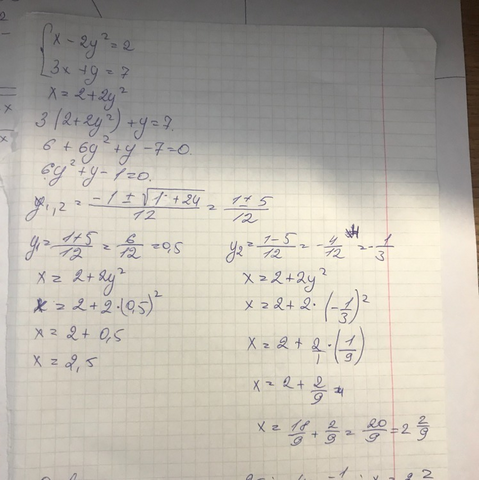 { x - 2y² = 2
3x + y = 7
x = 2 + 2y²
3(2 + 2y²) + y = 7.
6 + 6y² + y - 7 = 0.
6y² + y - 1 = 0.
y₁,₂ = (-1 ± √(1 + 24))/12 = (1 ± 5)/12
y₁ = (1+5)/12 = 6/12 = 0,5
x = 2 + 2y²
x = 2 + 2·(0,5)²
x = 2 + 0,5
x = 2,5
y₂ = (1-5)/12 = -4/12 = -1/3
x = 2 + 2y²
x = 2 + 2·(-1/3)²
x = 2 + 2/1·(1/9)
x = 2 + 2/9
x = 18/9 + 2/9 = 20/9 = 2 2/9